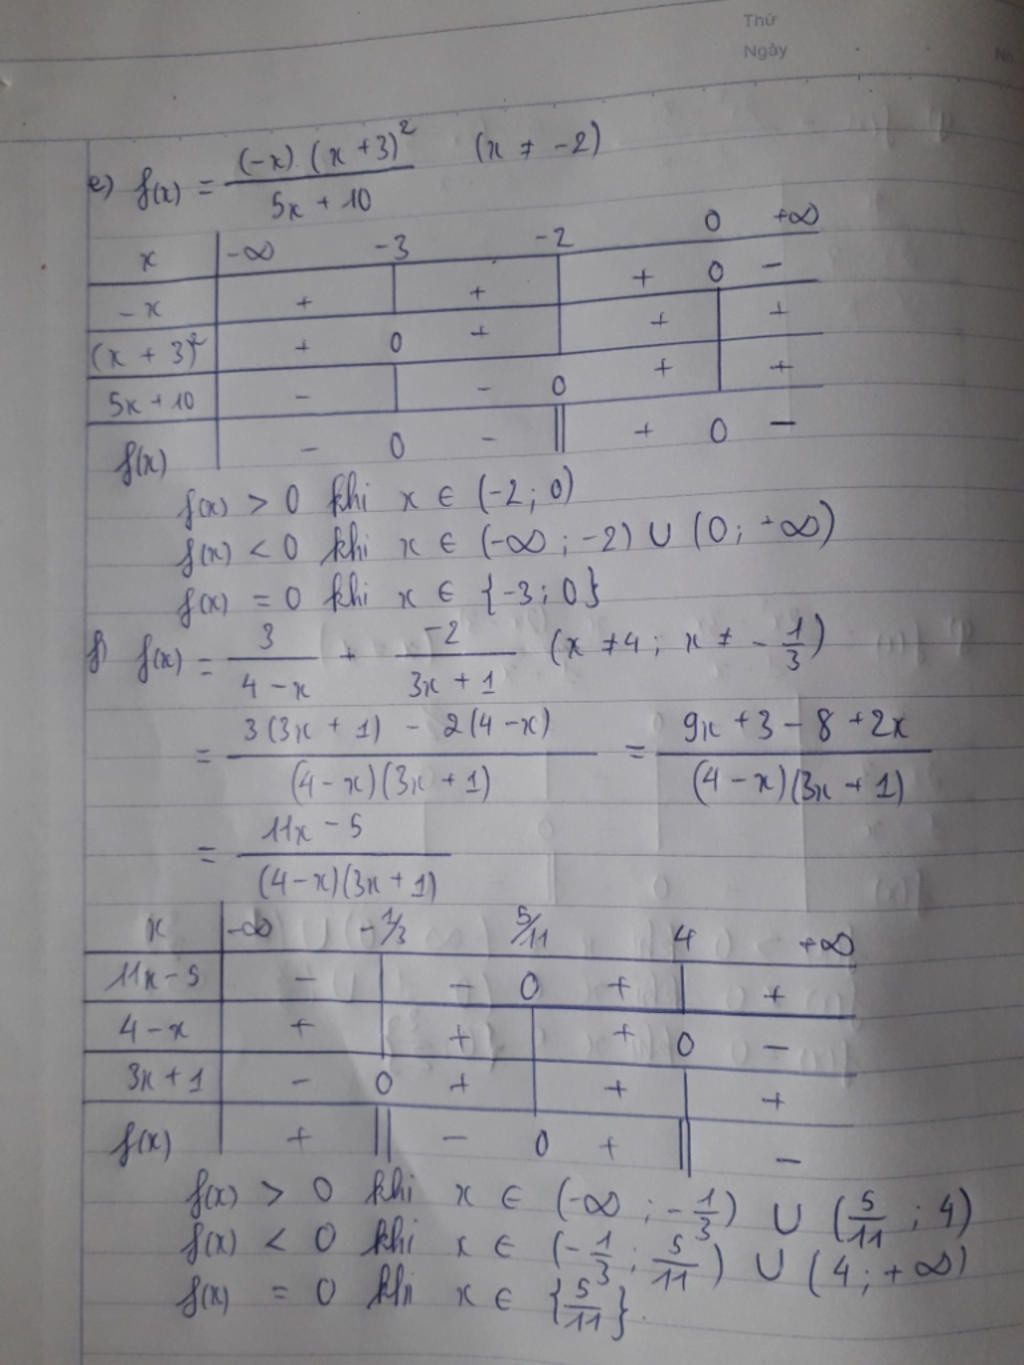 Thứ
Ngày
No.
e) f(x) = (-x) (x + 3)² / 5x + 10 (x ≠ -2)
x -∞ -3 -2 0 +∞
-x + + + 0 -
(x + 3)² + 0 + + +
5x + 10 - - 0 + +
f(x) - 0 - || + 0 -
f(x) > 0 khi x ∈ (-2; 0)
f(x) < 0 khi x ∈ (-∞; -2) ∪ (0; +∞)
f(x) = 0 khi x ∈ {-3; 0}
f) f(x) = 3 / 4 - x + -2 / 3x + 1 (x ≠ 4; x ≠ - 1/3)
= 3(3x + 1) - 2(4 - x) / (4 - x)(3x + 1) = 9x + 3 - 8 + 2x / (4 - x)(3x + 1)
= 11x - 5 / (4 - x)(3x + 1)
x -∞ -1/3 5/11 4 +∞
11x - 5 - - 0 + +
4 - x + + + 0 -
3x + 1 - 0 + + +
f(x) + || - 0 + || -
f(x) > 0 khi x ∈ (-∞; - 1/3) ∪ (5/11; 4)
f(x) < 0 khi x ∈ (- 1/3; 5/11) ∪ (4; +∞)
f(x) = 0 khi x ∈ {5/11}.